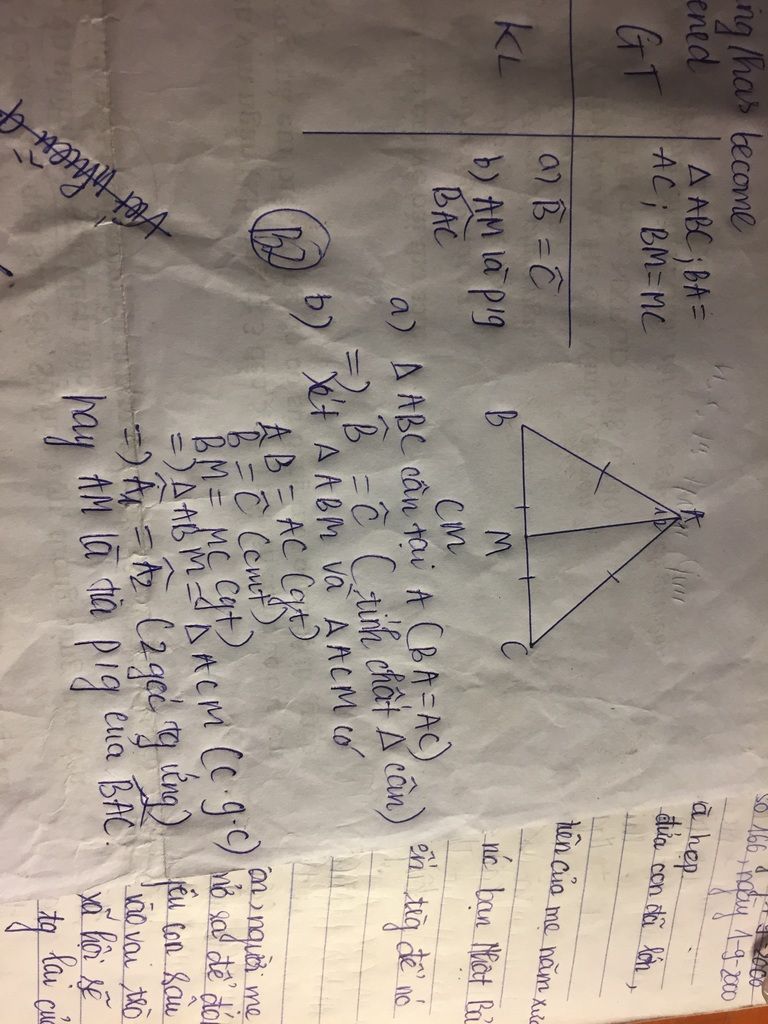 ing has become
ened
GT
Δ ABC ; BA =
AC ; BM = MC
KL
a) B̂ = Ĉ
b) AM là p/g
BAC
A
12
B
M
C
CM
B2
a) Δ ABC cân tại A (BA = AC)
=) B̂ = Ĉ (tính chất Δ cân)
b) Xét Δ ABM và Δ ACM có
AB = AC (gt)
B̂ = Ĉ (cmt)
BM = MC (gt)
=) Δ ABM = Δ ACM (c.g.c)
=) Â1 = Â2 (2 góc tg ứng)
hay AM là tia p/g của BAC.
số 166, ngày 1-9-2000
à hẹp
đứa con đã lớn,
trên của mẹ năm xư
nó bạn Nhật Bả
ến từg để nó
ôn, người mẹ
nở ra để đó
yêu con sâu
vào vai trò
xã hội sẽ
tg lai củ